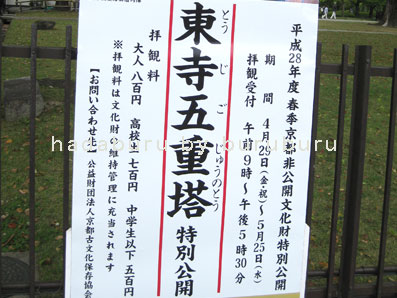 平成28年度 春季京都非公開文化財特別公開
期間 4月29日(金・祝)～5月25日(水)
拝観受付 午前9時～午後5時30分
とうじごじゅうのとう
東寺五重塔 特別公開
拝観料
大人 八百円 高校生 七百円 中学生以下 五百円
※拝観料は文化財の維持管理に充当されます
【お問い合わせ 公益財団法人京都古文化保存協会
hadaburu by buruburu